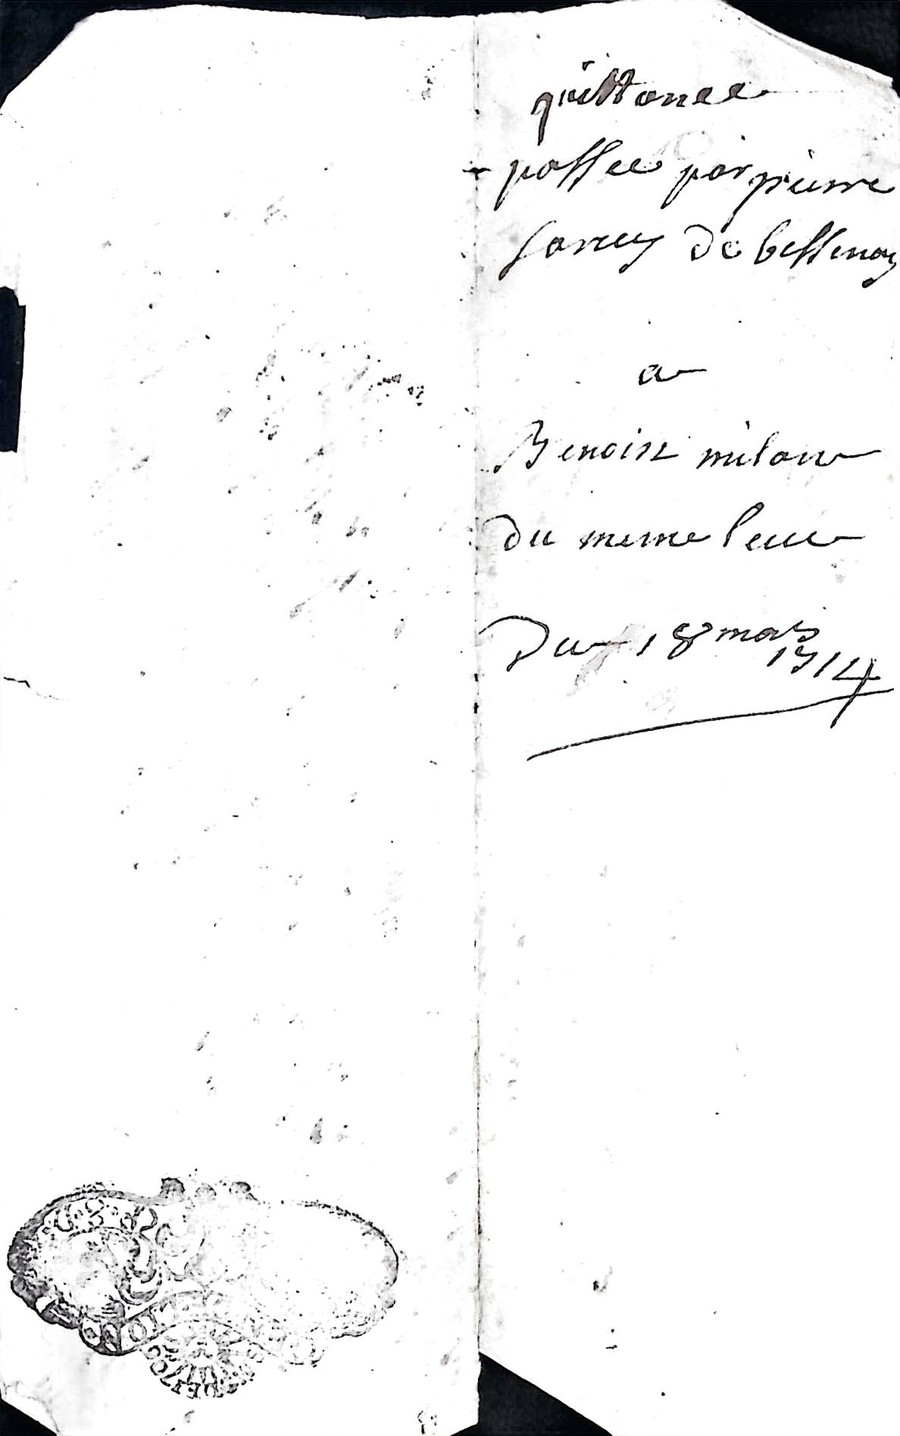 quittance
passee par pierre
de bessenay
a
Benoist milan
du meme lieu
Du 18 mars
1714